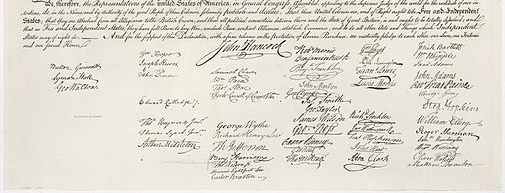 We, therefore, the Representatives of the United States of America, in General Congress, Assembled, appealing to the Supreme Judge of the world for the rectitude of our in-
tentions, do, in the Name, and by Authority of the good People of these Colonies, solemnly publish and declare, That these United Colonies are, and of Right ought to be Free and Independent
States; that they are Absolved from all Allegiance to the British Crown, and that all political connection between them and the State of Great Britain, is and ought to be totally dissolved; and
that as Free and Independent States, they have full Power to levy War, conclude Peace, contract Alliances, establish Commerce, and to do all other Acts and Things which Independent
States may of right do. And for the support of this Declaration, with a firm reliance on the protection of divine Providence, we mutually pledge to each other our Lives, our Fortunes
and our sacred Honor.
John Hancock
Button Gwinnett
Lyman Hall
Geo Walton
Wm Hooper
Joseph Hewes
John Penn
Edward Rutledge
Thos Heyward Junr
Thomas Lynch Junr
Arthur Middleton
Samuel Chase
Wm Paca
Thos Stone
Charles Carroll of Carrollton
George Wythe
Richard Henry Lee
Th Jefferson
Benj Harrison
Thos Nelson jr
Francis Lightfoot Lee
Carter Braxton
Robt Morris
Benjamin Rush
Benj Franklin
John Morton
Geo Clymer
Jas Smith
Geo Taylor
James Wilson
Geo Ross
Caesar Rodney
Geo Read
Tho M:Kean
Wm Floyd
Phil Livingston
Frans Lewis
Lewis Morris
Richd Stockton
Jno Witherspoon
Fras Hopkinson
John Hart
Abra Clark
Josiah Bartlett
Wm Whipple
John Adams
Robt Treat Paine
Elbridge Gerry
Step Hopkins
William Ellery
Roger Sherman
Wm Williams
Oliver Wolcott
Matthew Thornton